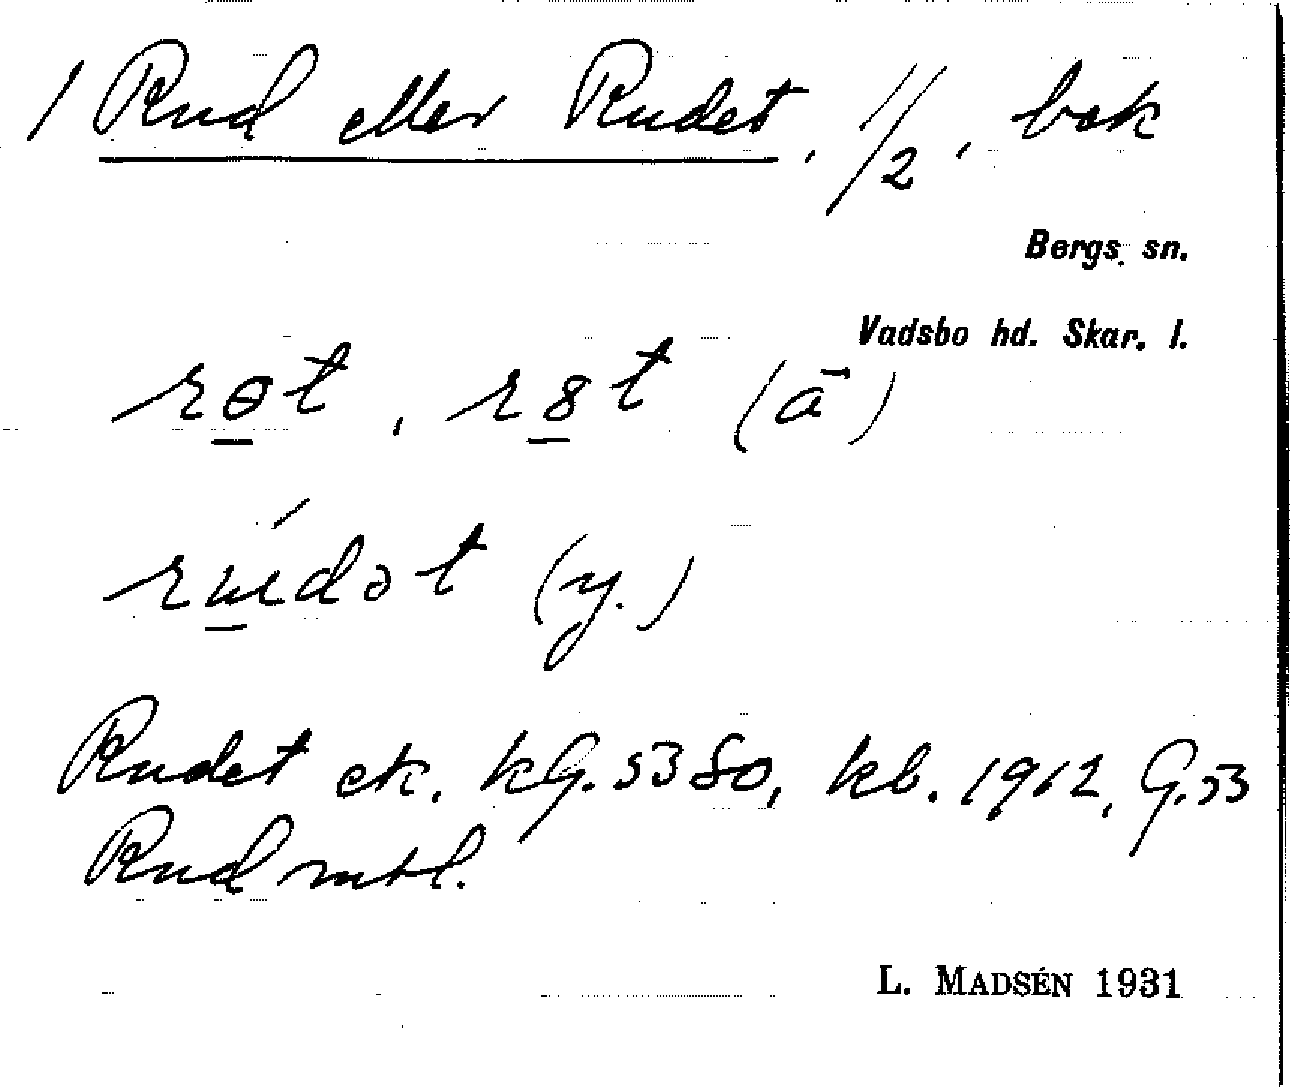 1 Rud eller Rudet, 1/2, bok
Bergs sn.
Vadsbo hd. Skar. l.
rɵt, r8t (ā)
rúdət (y.)
Rudet ek. kG. 5380, kb. 1912, G. 53
Rud mtl.
L. MADSÉN 1931